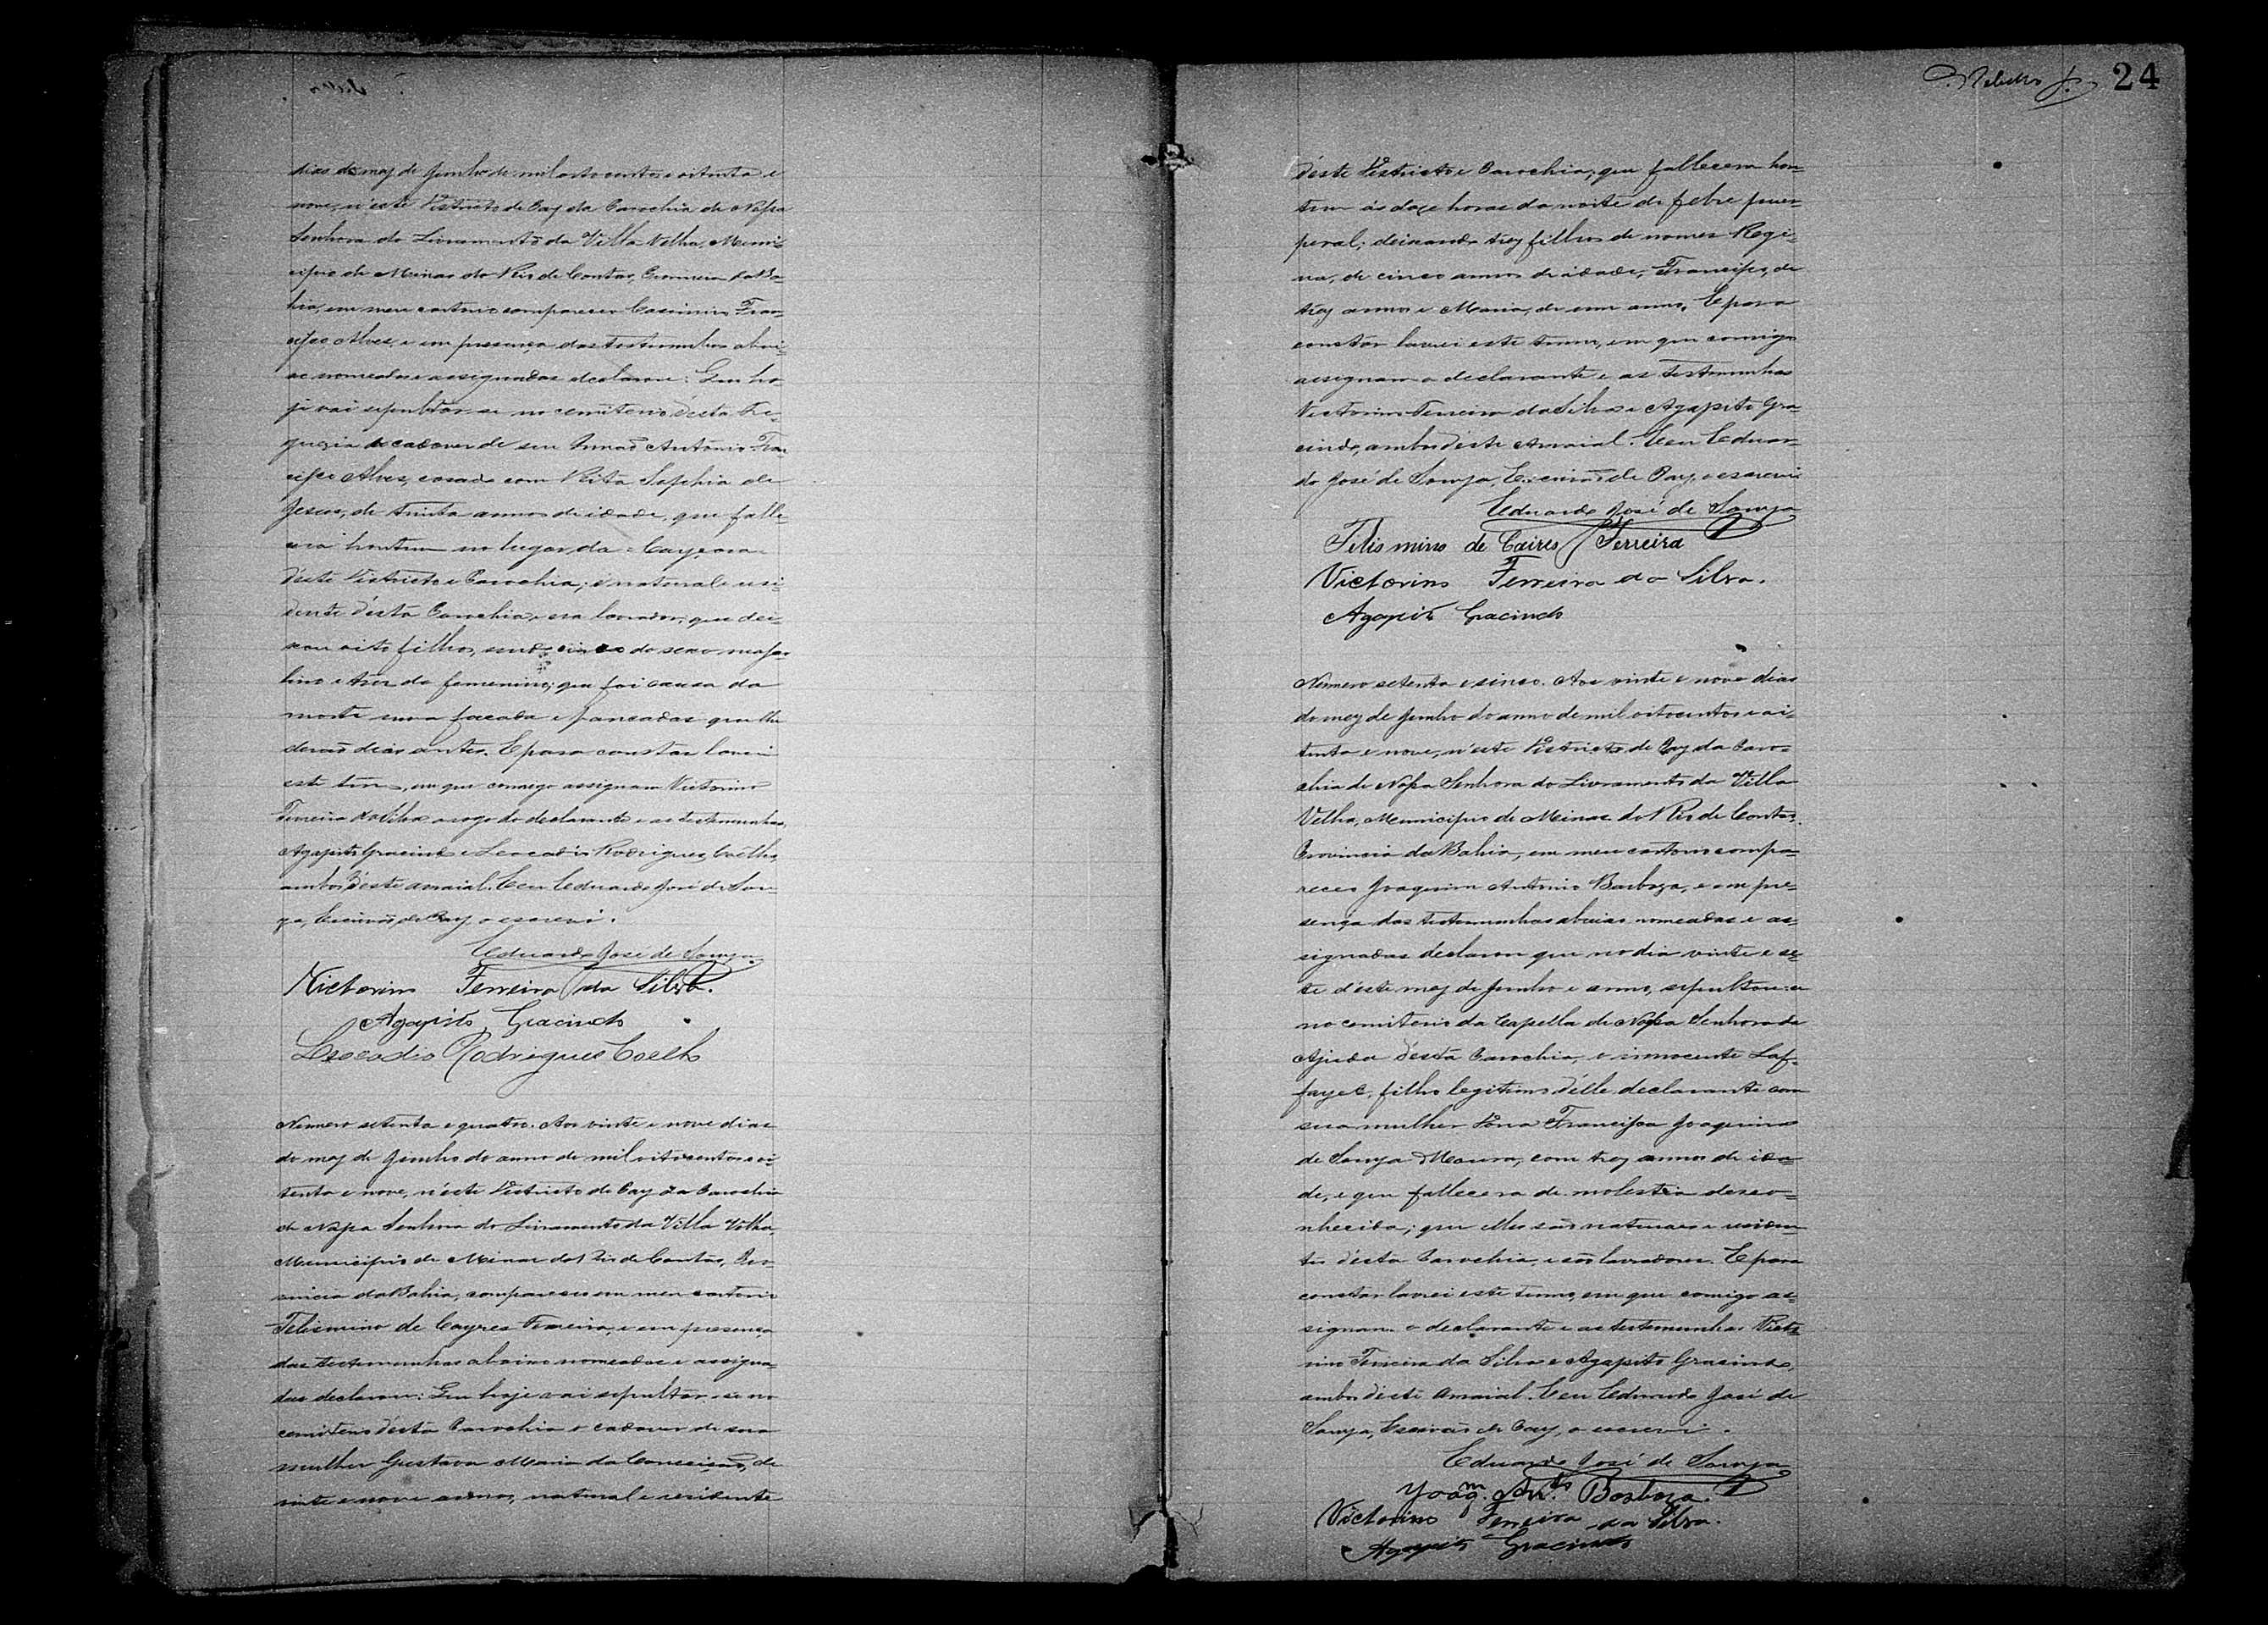 dias do mez de Junho de mil oito centos e oitenta e
nove, n'este Districto de Paz da Parochia de Nossa
Senhora do Livramento da Villa Velha, Muni-
cipio de Minas do Rio de Contas, Provincia da Ba-
hia, em meu cartorio compareceo Casimiro Fran-
cisco Alves, e em presença das testemunhas abai-
xo nomeadas e assignadas declarou: Que ho-
je vai sepultar-se no cemiterio d'esta Fre-
guezia o cadaver de seu Irmaõ Antonio Fran
cisco Alves, casado com Rita Sophia de
Jesus, de trinta annos de idade, que falle-
ceo hontem no lugar da
d'este Districto e Parochia; é natural e resi-
dente d'esta Parochia, era lavrador, que dei-
xou oito filhos, sendo cinco do sexo mascu
lino e tres do femenino; que foi causa da
morte uma facada e pancadas que lhe
deraõ dias antes. E para constar lavrei
este termo, em que comigo assignam Victorino
Ferreira da Silva a rogo do declarante e as testemunhas
Agapito Gracindo e Leocadio Rodrigues Coelho
ambos d'este arraial. Eu Eduardo José de Sou
za, Escrivaõ de Paz o escrevi.
Eduardo José de Souza
Victorino Ferreira da Silva.
Agapito Gracindo
Leocadio Rodrigues Coelho
Numero setenta e quatro. Aos vinte e nove dias
do mez de Junho do anno de mil oitocentos e oi-
tenta e nove, n'este Districto de Paz da Parochia
de Nossa Senhora do Livramento da Villa Velha,
Municipio de Minas do Rio de Contas, Pro
vincia da Bahia, compareceo em meu cartorio
Felismino de Cayres Ferreira, e em presença
das testemunhas abaixo nomeadas e assigna-
das declarou: Que hoje vai sepultar-se no
cemiterio d'esta Parochia o cadaver de sua
mulher Gustava Maria da Conceiçaõ, de
vinte e nove annos, natural e residente
24
d'este Districto e Parochia, que fallecera hon-
tem ás doze horas da noite de febre puer-
peral; deixando trez filhos de nomes Regi-
na, de cinco annos de idade, Francisco, de
trez annos e Maria, de um anno. E para
constar lavrei este termo, em que comigo
assignam o declarante e as testemunhas
Victorino Ferreira da Silva e Agapito Gra-
cindo, ambos d'este Arraial. Eu Eduar-
do José de Souza, Escrivaõ de Paz, o escrevi
Eduardo José de Souza
Felismino de Caires Ferreira
Victorino Ferreira da Silva.
Agapito Gracindo
Numero setenta e sinco. Aos vinte e nove dias
do mez de Junho do anno de mil oitocentos e oi-
tenta e nove, n'este Districto de Paz da Paro-
chia de Nossa Senhora do Livramento da Villa
Velha, Municipio de Minas do Rio de Contas,
Provincia da Bahia, em meu cartorio compa-
receo Joaquim Antonio Barboza, e em pre-
sença das testemunhas abaixo nomeadas e as-
signadas declarou que no dia vinte e se-
te d'este mez de Junho e anno, sepultou-se
no cemiterio da Capella de Nossa Senhora da
Ajuda d'esta Parochia, o innocente Laf-
fayet, filho legitimo d'elle declarante com
sua mulher Dona Francisca Joaquina
de Souza Moura, com trez annos de ida-
de, e que fallecera de molestia desco-
nhecida; que elles saõ naturaes e residen
tes d'esta Parochia, e saõ lavradores. E para
constar lavrei este termo, em que comigo as-
signam o declarante e as testemunhas Victo
rino Ferreira da Silva e Agapito Gracindo,
ambos d'este Arraial. Eu Eduardo José de
Souza, Escrivaõ de Paz, o escrevi.
Eduardo José de Souza
Joaqm. Anto. Barboza.
Victorino Ferreira da Silva.
Agapito Gracindo